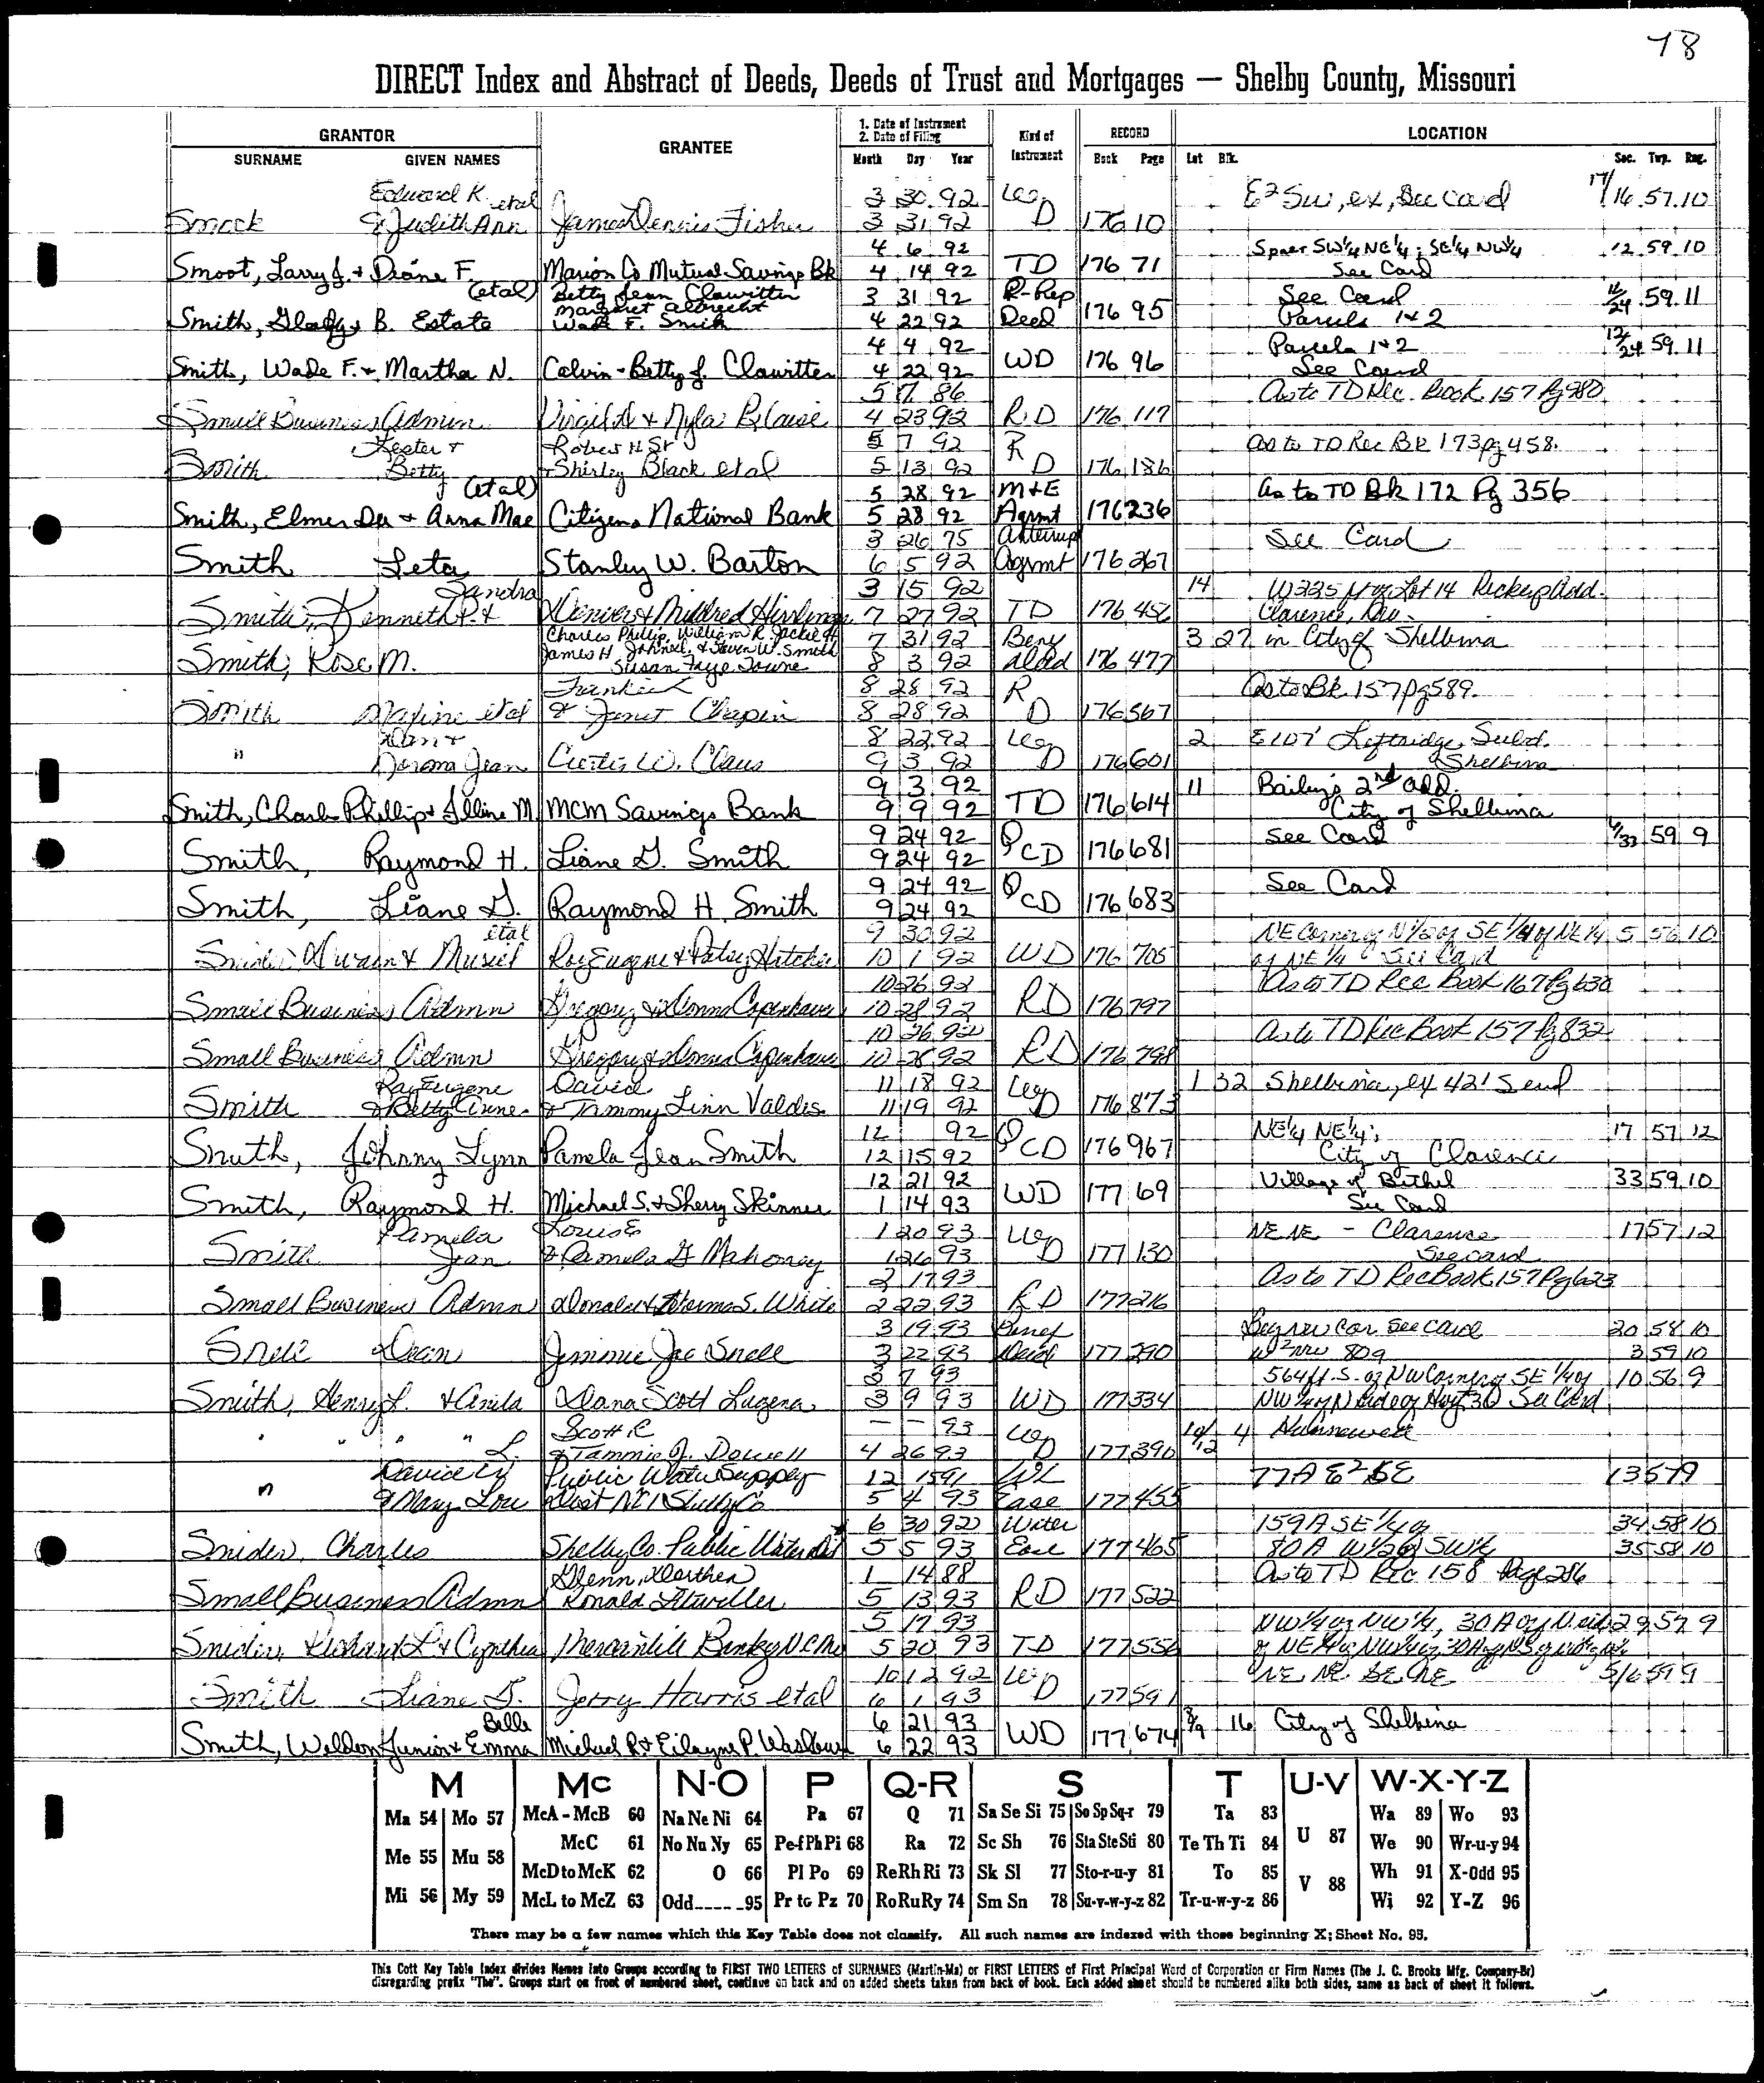 78
DIRECT Index and Abstract of Deeds, Deeds of Trust and Mortgages — Shelby County, Missouri
GRANTOR
SURNAME GIVEN NAMES
GRANTEE
1. Date of Instrument
2. Date of Filing
Month Day Year
Kind of Instrument
RECORD
Book Page
LOCATION
Lot Blk. Sec. Twp. Rng.
Edward K. etal 3 30 92 WD E2 SW, ex, See Card 17/16 57 10
Smock & Judith Ann James Dennis Fisher 3 31 92 176 10
4 6 92 SW¼ NE¼; SE¼ NW¼ 12 59 10
Smoot, Larry J. & Diane F. Marion Co Mutual Savings Bk 4 14 92 TD 176 71 See Card
(etal) Betty Jean Clawitter 3 31 92 See Card 59 11
Margaret Albrecht
Smith, Gladys B. Estate Wade F. Smith 4 22 92 Deed 176 95 Parcels 1+2
4 4 92 Parcels 1+2 59 11
Smith, Wade F. & Martha N. Calvin - Betty J. Clawitter 4 22 92 WD 176 96 See Card
5 7 86 As to TD Rec. Book 157 Pg 980
Small Business Admin Virgil & Blaise 4 23 92 RD 176 117
Lester & Robert H Sr 5 7 92 As to TD Rec Bk 173 pg 458
Smith Betty & Shirley Black etal 5 13 92 RD 176 186
(etal) 5 28 92 M+E As to TD Bk 172 Pg 356
Smith, Elmer Dee & Anna Mae Citizens National Bank 5 28 92 Agrmt 176 236
3 26 75 See Card
Smith Leta Stanley W. Barton 6 5 92 Agrmt 176 267
Sandra 3 15 92 14 Lot 14
Smith, Kenneth P. & Mildred 7 27 92 TD 176 456 Clarence
Charles Phillip, William R. Jackie H. 7 31 92 Beny 3 27 in City of Shelbina
James H. & Steven W. Smith
Smith, Rose M. Susan Faye Towne 8 3 92 Deed 176 477
8 28 92 As to Bk 157 pg 589
Smith Maxine etal & Janet Chapin 8 28 92 RD 176 567
8 22 92 WD 2 E 107' Loftridge Subd.
" Norma Jean Curtis W. Claus 9 3 92 176 601 Shelbina
9 3 92 11 Bailey's 2nd Add.
Smith, Charles Phillip & Illine M MCM Savings Bank 9 9 92 TD 176 614 City of Shelbina
9 24 92 See Card 59 9
Smith, Raymond H. Liane G. Smith 9 24 92 QCD 176 681
9 24 92 See Card
Smith, Liane G. Raymond H. Smith 9 24 92 QCD 176 683
etal 9 30 92 NE Corner of N1/2 of SE 1/4 of NE 1/4 5 56 10
Snider & Muriel Roy Eugene & Patsy 10 1 92 WD 176 705 of NE 1/4 See Card
10 26 92 As to TD Rec Book 167 Pg 630
Small Business Admn Gregory & Donna Copenhaver 10 28 92 RD 176 797
10 26 92 As to TD Rec Book 157 Pg 832
Small Business Admn Gregory & Donna Copenhaver 10 28 92 RD 176 798
Ray Eugene David 11 18 92 1 32 Shelbina, ex 42' S end
Smith & Betty Anne & Tammy Linn Valdis 11 19 92 WD 176 873
12 92 NE¼ NE¼; 17 57 12
Smith, Johnny Lynn Pamela Jean Smith 12 15 92 QCD 176 967 City of Clarence
12 21 92 Village of Bethel 33 59 10
Smith, Raymond H. Michael S. & Sherry Skinner 1 14 93 WD 177 69 See Card
Pamela Louis E 1 20 93 NE NE - Clarence 17 57 12
Smith Jean & Pamela G Mahoney 1 26 93 WD 177 130 See card
2 17 93 As to TD Rec Book 157 Pg 623
Small Business Admn Donald & S. White 2 22 93 RD 177 216
3 19 93 Benef See card 20 58 10
Snell Dean Jimmie Joe Snell 3 22 93 Deed 177 290 W2 NW 80a 3 59 10
3 7 93 564 ft. S. of NW Corner of SE 1/4 of 10 56 9
Smith, Henry L. & Anita Dana Scott Lugena 3 9 93 WD 177 334 See Card
Scott R — — 93 10/12 4 Hunnewell
" " " " L. & Tammie J. Dowell 4 26 93 WD 177 390
Public Water Supply 12 15 91 77A E2 SE 13 57 9
" & Mary Lou Dist No 1 Shelby Co 5 4 93 Ease 177 455
6 30 92 Water 159A SE 1/4 of 34 58 10
Snider, Charles Shelby Co. Public Water Dist 5 5 93 Ease 177 465 80 A W1/2 of SW¼ 35 58 10
Glenn, 1 14 88 As to TD Rec 158 Page 286
Small Business Admn Ronald 5 13 93 RD 177 522
5 17 93 NW 1/4 of NW 1/4, 30 A of 29 57 9
Snider, Richard L & Cynthia Mercantile Bank of 5 20 93 TD 177 556
10 12 92 NE NE SE NE 5/6 59 9
Smith Liane G. Jerry Harris etal 6 1 93 WD 177 591
Belle 6 21 93 16 City of Shelbina
Smith, Weldon Junior & Emma Michael R & Eilayne P. Washburn 6 22 93 WD 177 674
M Mc N-O P Q-R S T U-V W-X-Y-Z
Ma 54 Mo 57 McA - McB 60 Na Ne Ni 64 Pa 67 Q 71 Sa Se Si 75 So Sp Sq-r 79 Ta 83 U 87 Wa 89 Wo 93
Me 55 Mu 58 McC 61 No Nu Ny 65 Pe-f Ph Pi 68 Ra 72 Sc Sh 76 Sta Ste Sti 80 Te Th Ti 84 We 90 Wr-u-y 94
McD to McK 62 O 66 Pl Po 69 Re Rh Ri 73 Sk Sl 77 Sto-r-u-y 81 To 85 V 88 Wh 91 X-Odd 95
Mi 56 My 59 McL to McZ 63 Odd-----95 Pr to Pz 70 Ro Ru Ry 74 Sm Sn 78 Su-v-w-y-z 82 Tr-u-w-y-z 86 Wi 92 Y-Z 96
There may be a few names which this Key Table does not classify. All such names are indexed with those beginning X; Sheet No. 95.
This Cott Key Table Index divides Names into Groups according to FIRST TWO LETTERS of SURNAMES (Martin-Ma) or FIRST LETTERS of First Principal Word of Corporation or Firm Names (The J. C. Brooks Mfg. Company-Br)
disregarding prefix "The". Groups start on front of numbered sheet, continue on back and on added sheets taken from back of book. Each added sheet should be numbered alike both sides, same as back of sheet it follows.